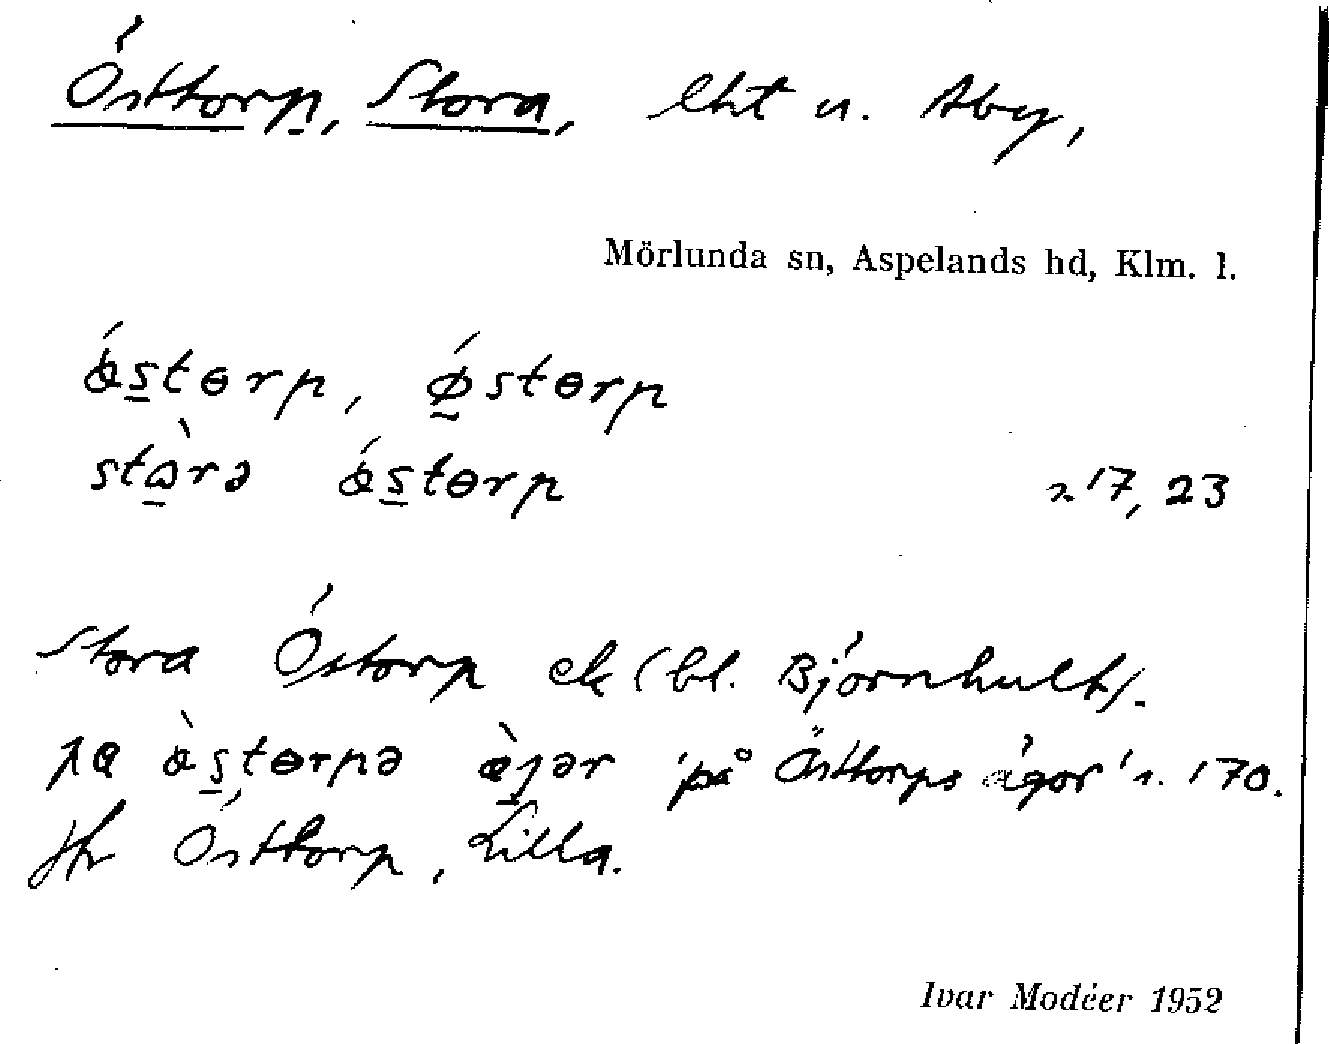 Östtorp, Stora, lht u. Åby,
Mörlunda sn, Aspelands hd, Klm. l.
ǿs̲tɵrp, ǿ̲stɵrp
stɷ̲̀rə ǿs̲tɵrp n 17, 23
Stora Östorp ek (bl. Björnhult).
pa s̲tɵrpə ər 'på Östtorps ägor' n. 170.
Jfr Östtorp, Lilla.
Ivar Modéer 1952